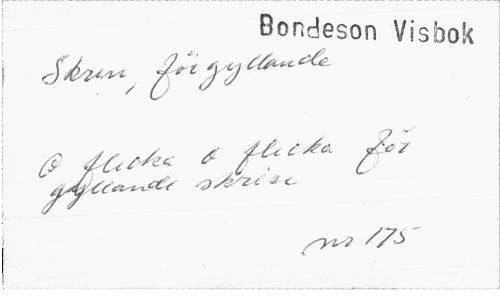 Bondeson Visbok
Skrin, förgyllande
O flicka o flicka för
gyllande skrin
nr 175